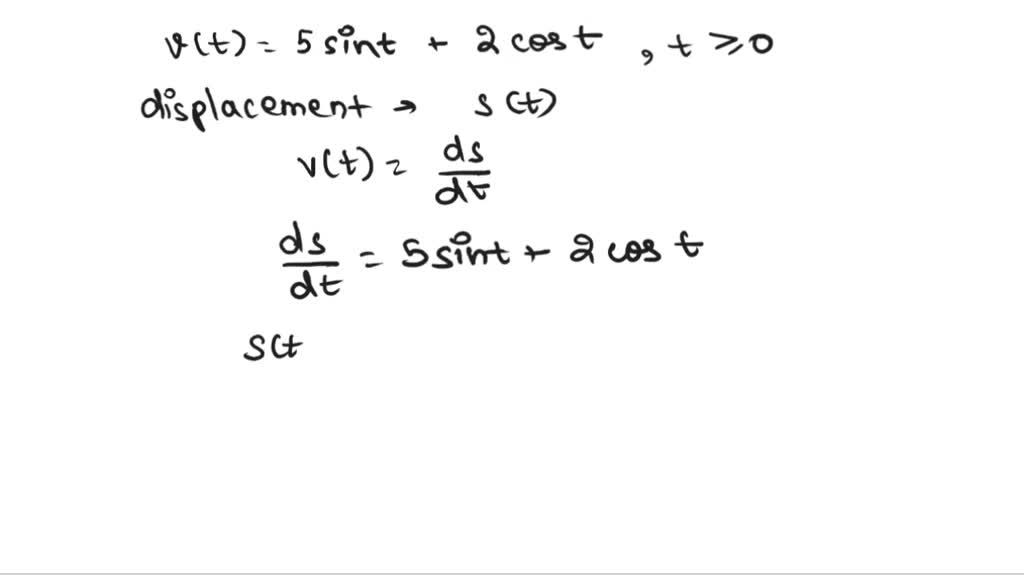 v(t) = 5 sint + 2 cos t , t ≥ 0
displacement → s(t)
v(t) = ds/dt
ds/dt = 5 sint + 2 cos t
s(t